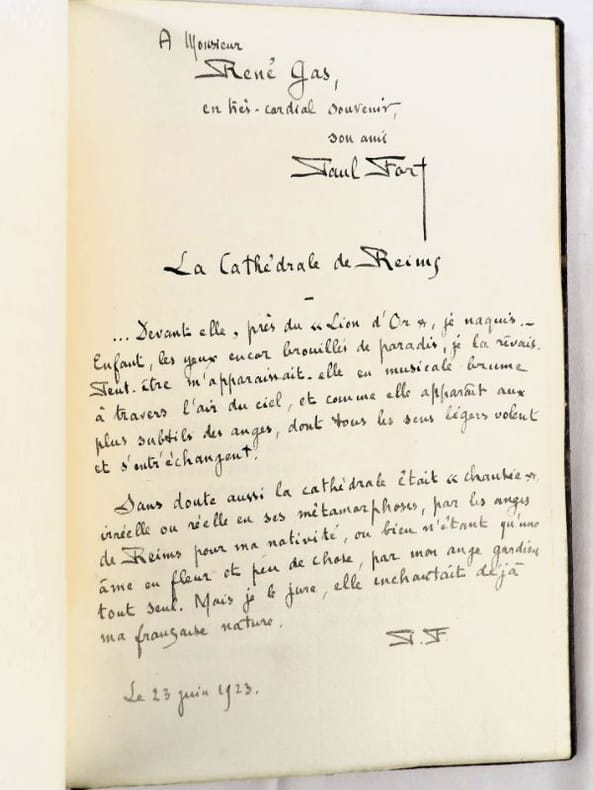 A Monsieur
René Gas,
en très-cordial souvenir,
son ami
Paul Fort
La Cathédrale de Reims
–
... Devant elle, près du « Lion d'Or », je naquis. –
Enfant, les yeux encor brouillés de paradis, je la rêvais.
Peut-être m'apparaissait-elle en musicale brume
à travers l'air du ciel, et comme elle apparaît aux
plus subtils des anges, dont tous les sens légers volent
et s'entr'échangent.
Sans doute aussi la cathédrale était « chantée »,
irréelle ou réelle en ses métamorphoses, par les anges
de Reims pour ma nativité, ou bien n'étant qu'une
âme en fleur et peu de chose, par mon ange gardien
tout seul. Mais je le jure, elle enchantait déjà
ma française nature.
P. F.
Le 23 juin 1923.